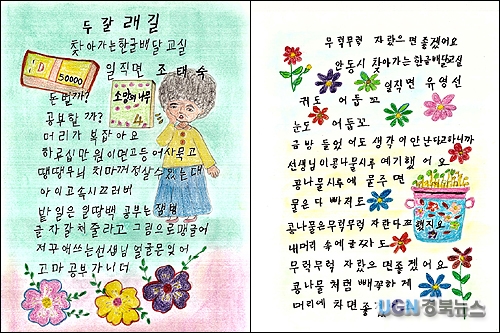 두 갈 래 길
찾아가는한글배달 교실
일직면 조 태 숙
50000
돈 벌까?
소망의 나무
4
공부할 까?
머리가 복잡아 요
하루십 만 원이면고등어사묵고
땡땡무늬 치마꺼정살수있는대
아 이 고 속시끄러버
밭 일은 원땅백 공부는 잼병
글 자 같 쳐 줄라고 그림으로맹글어
저꾸 애쓰는선생님 얼굴문잊어
고 마 공부 가니더
무럭무럭 자랐으면좋겠어요
안동시 찾아가는한글배달교실
일직면 유 영 선
귀도 어둡꼬
눈도 어둡꼬
금방 들어도 생각이안난다고하니까
선생님이콩나물시루 예기했어요
콩나물시루에 물주면
물은 다 빠져도
콩나물은무럭무럭 자란다꼬 했지요
내머리 속에글짜도
무럭무럭 자랐으면좋겠어요
콩나물 처럼 빼꼭하게
머리에 차면 좋
UGN경북뉴스